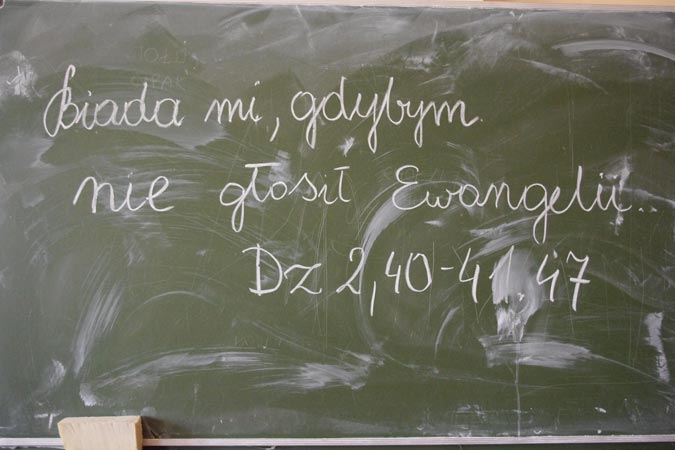 Biada mi, gdybym
nie głosił Ewangelii..
Dz 2,40-41.47